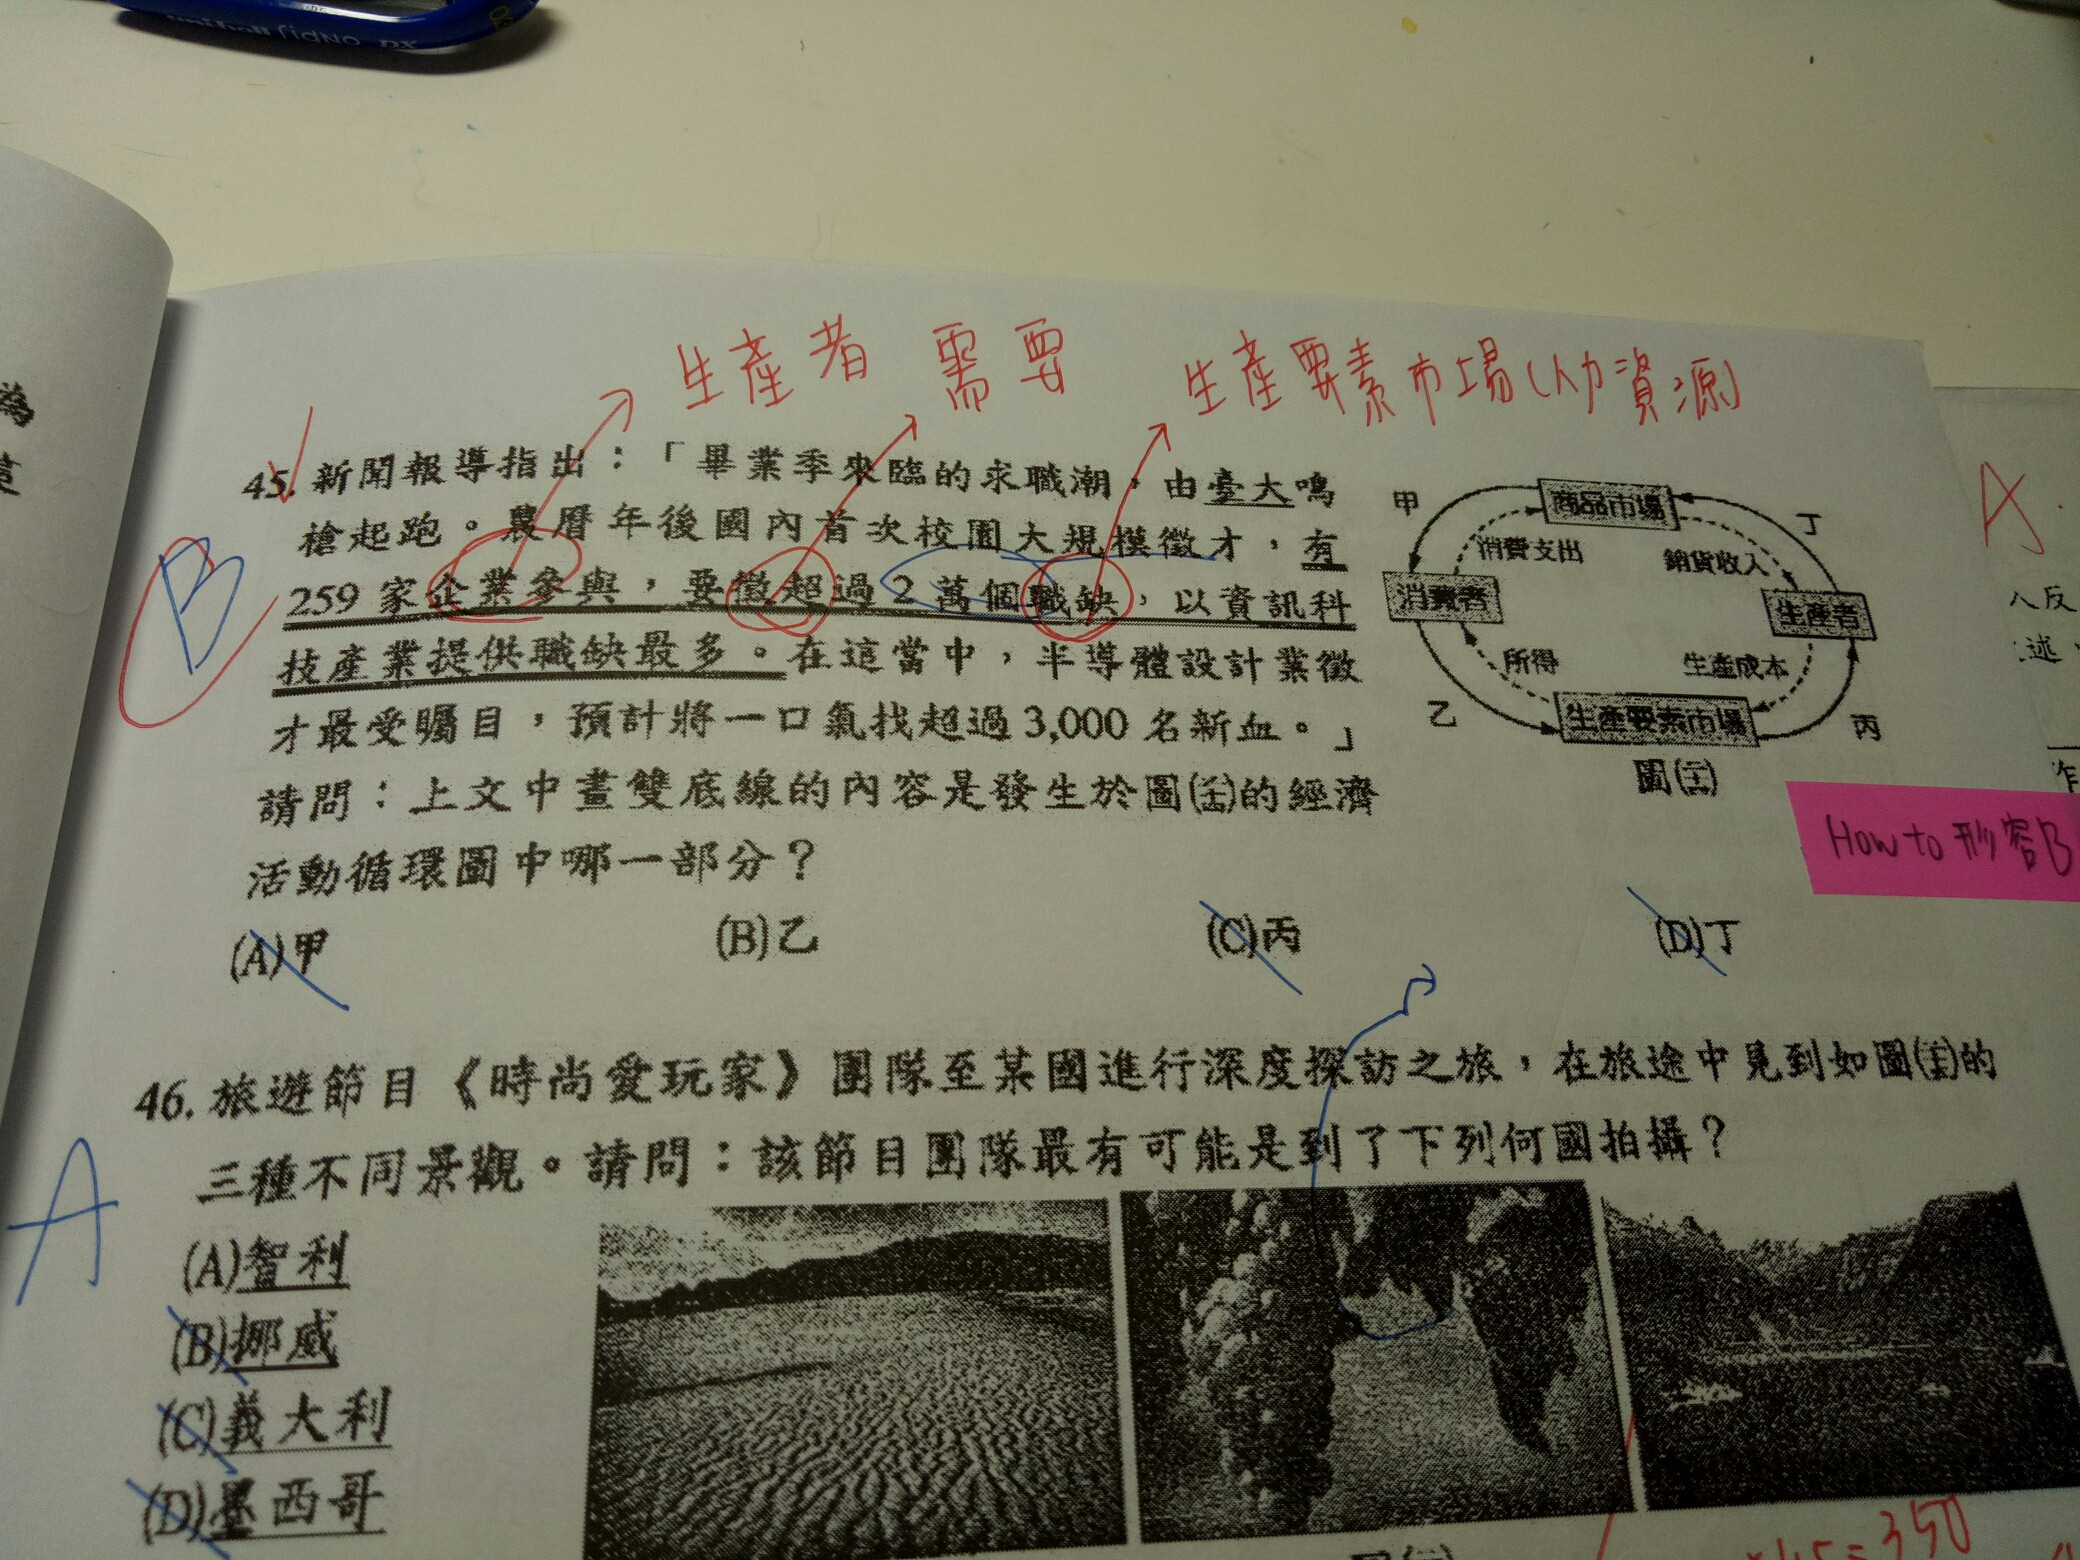 uni-ball SigNo DX
生產者 需要 生產要素市場(人力資源)
45. 新聞報導指出：「畢業季來臨的求職潮，由臺大鳴
槍起跑。農曆年後國內首次校園大規模徵才，有
259 家企業參與，要徵超過 2 萬個職缺，以資訊科
技產業提供職缺最多。在這當中，半導體設計業徵
才最受矚目，預計將一口氣找超過 3,000 名新血。」
請問：上文中畫雙底線的內容是發生於圖的經濟
活動循環圖中哪一部分？
B
甲
商品市場
丁
消費支出
銷貨收入
消費者
生產者
所得
生產成本
乙
生產要素市場
丙
圖
(A)甲 (B)乙 (C)丙 (D)丁
A
How to 形容B
46. 旅遊節目《時尚愛玩家》團隊至某國進行深度探訪之旅，在旅途中見到如圖的
三種不同景觀。請問：該節目團隊最有可能是到了下列何國拍攝？
A
(A)智利
(B)挪威
(C)義大利
(D)墨西哥
=350